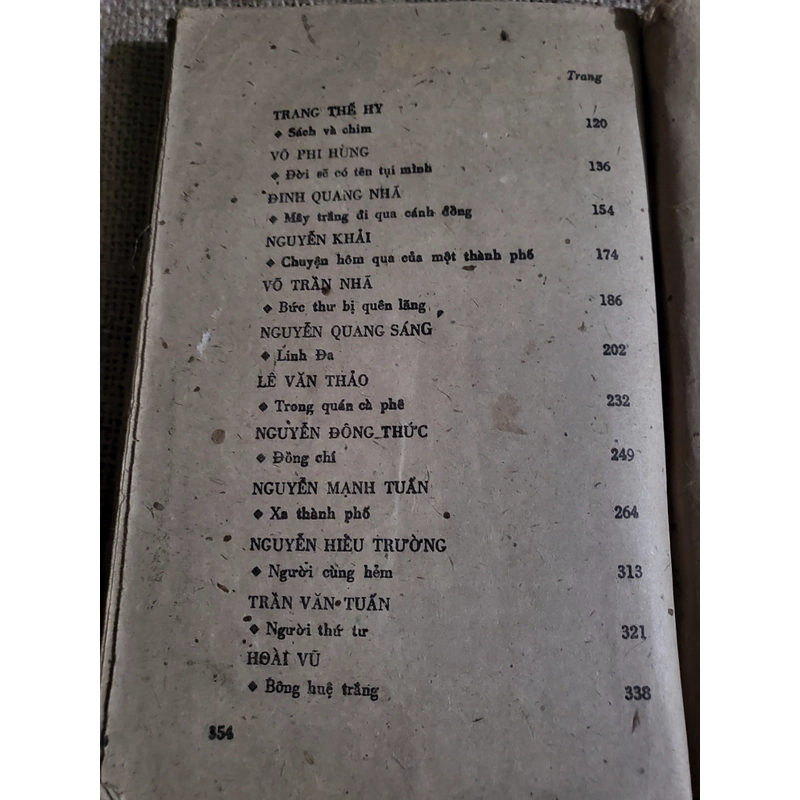 Trang
TRANG THẾ HY
◆ Sách và chim 120
VÕ PHI HÙNG
◆ Đời sẽ có tên tụi mình 136
ĐINH QUANG NHÃ
◆ Mây trắng đi qua cánh đồng 154
NGUYỄN KHẢI
◆ Chuyện hôm qua của một thành phố 174
VÕ TRẦN NHÃ
◆ Bức thư bị quên lãng 186
NGUYỄN QUANG SÁNG
◆ Linh Đa 202
LÊ VĂN THẢO
◆ Trong quán cà phê 232
NGUYỄN ĐÔNG THỨC
◆ Đồng chí 249
NGUYỄN MẠNH TUẤN
◆ Xa thành phố 264
NGUYỄN HIẾU TRƯỜNG
◆ Người cùng hẻm 313
TRẦN VĂN TUẤN
◆ Người thứ tư 321
HOÀI VŨ
◆ Bông huệ trắng 338
354